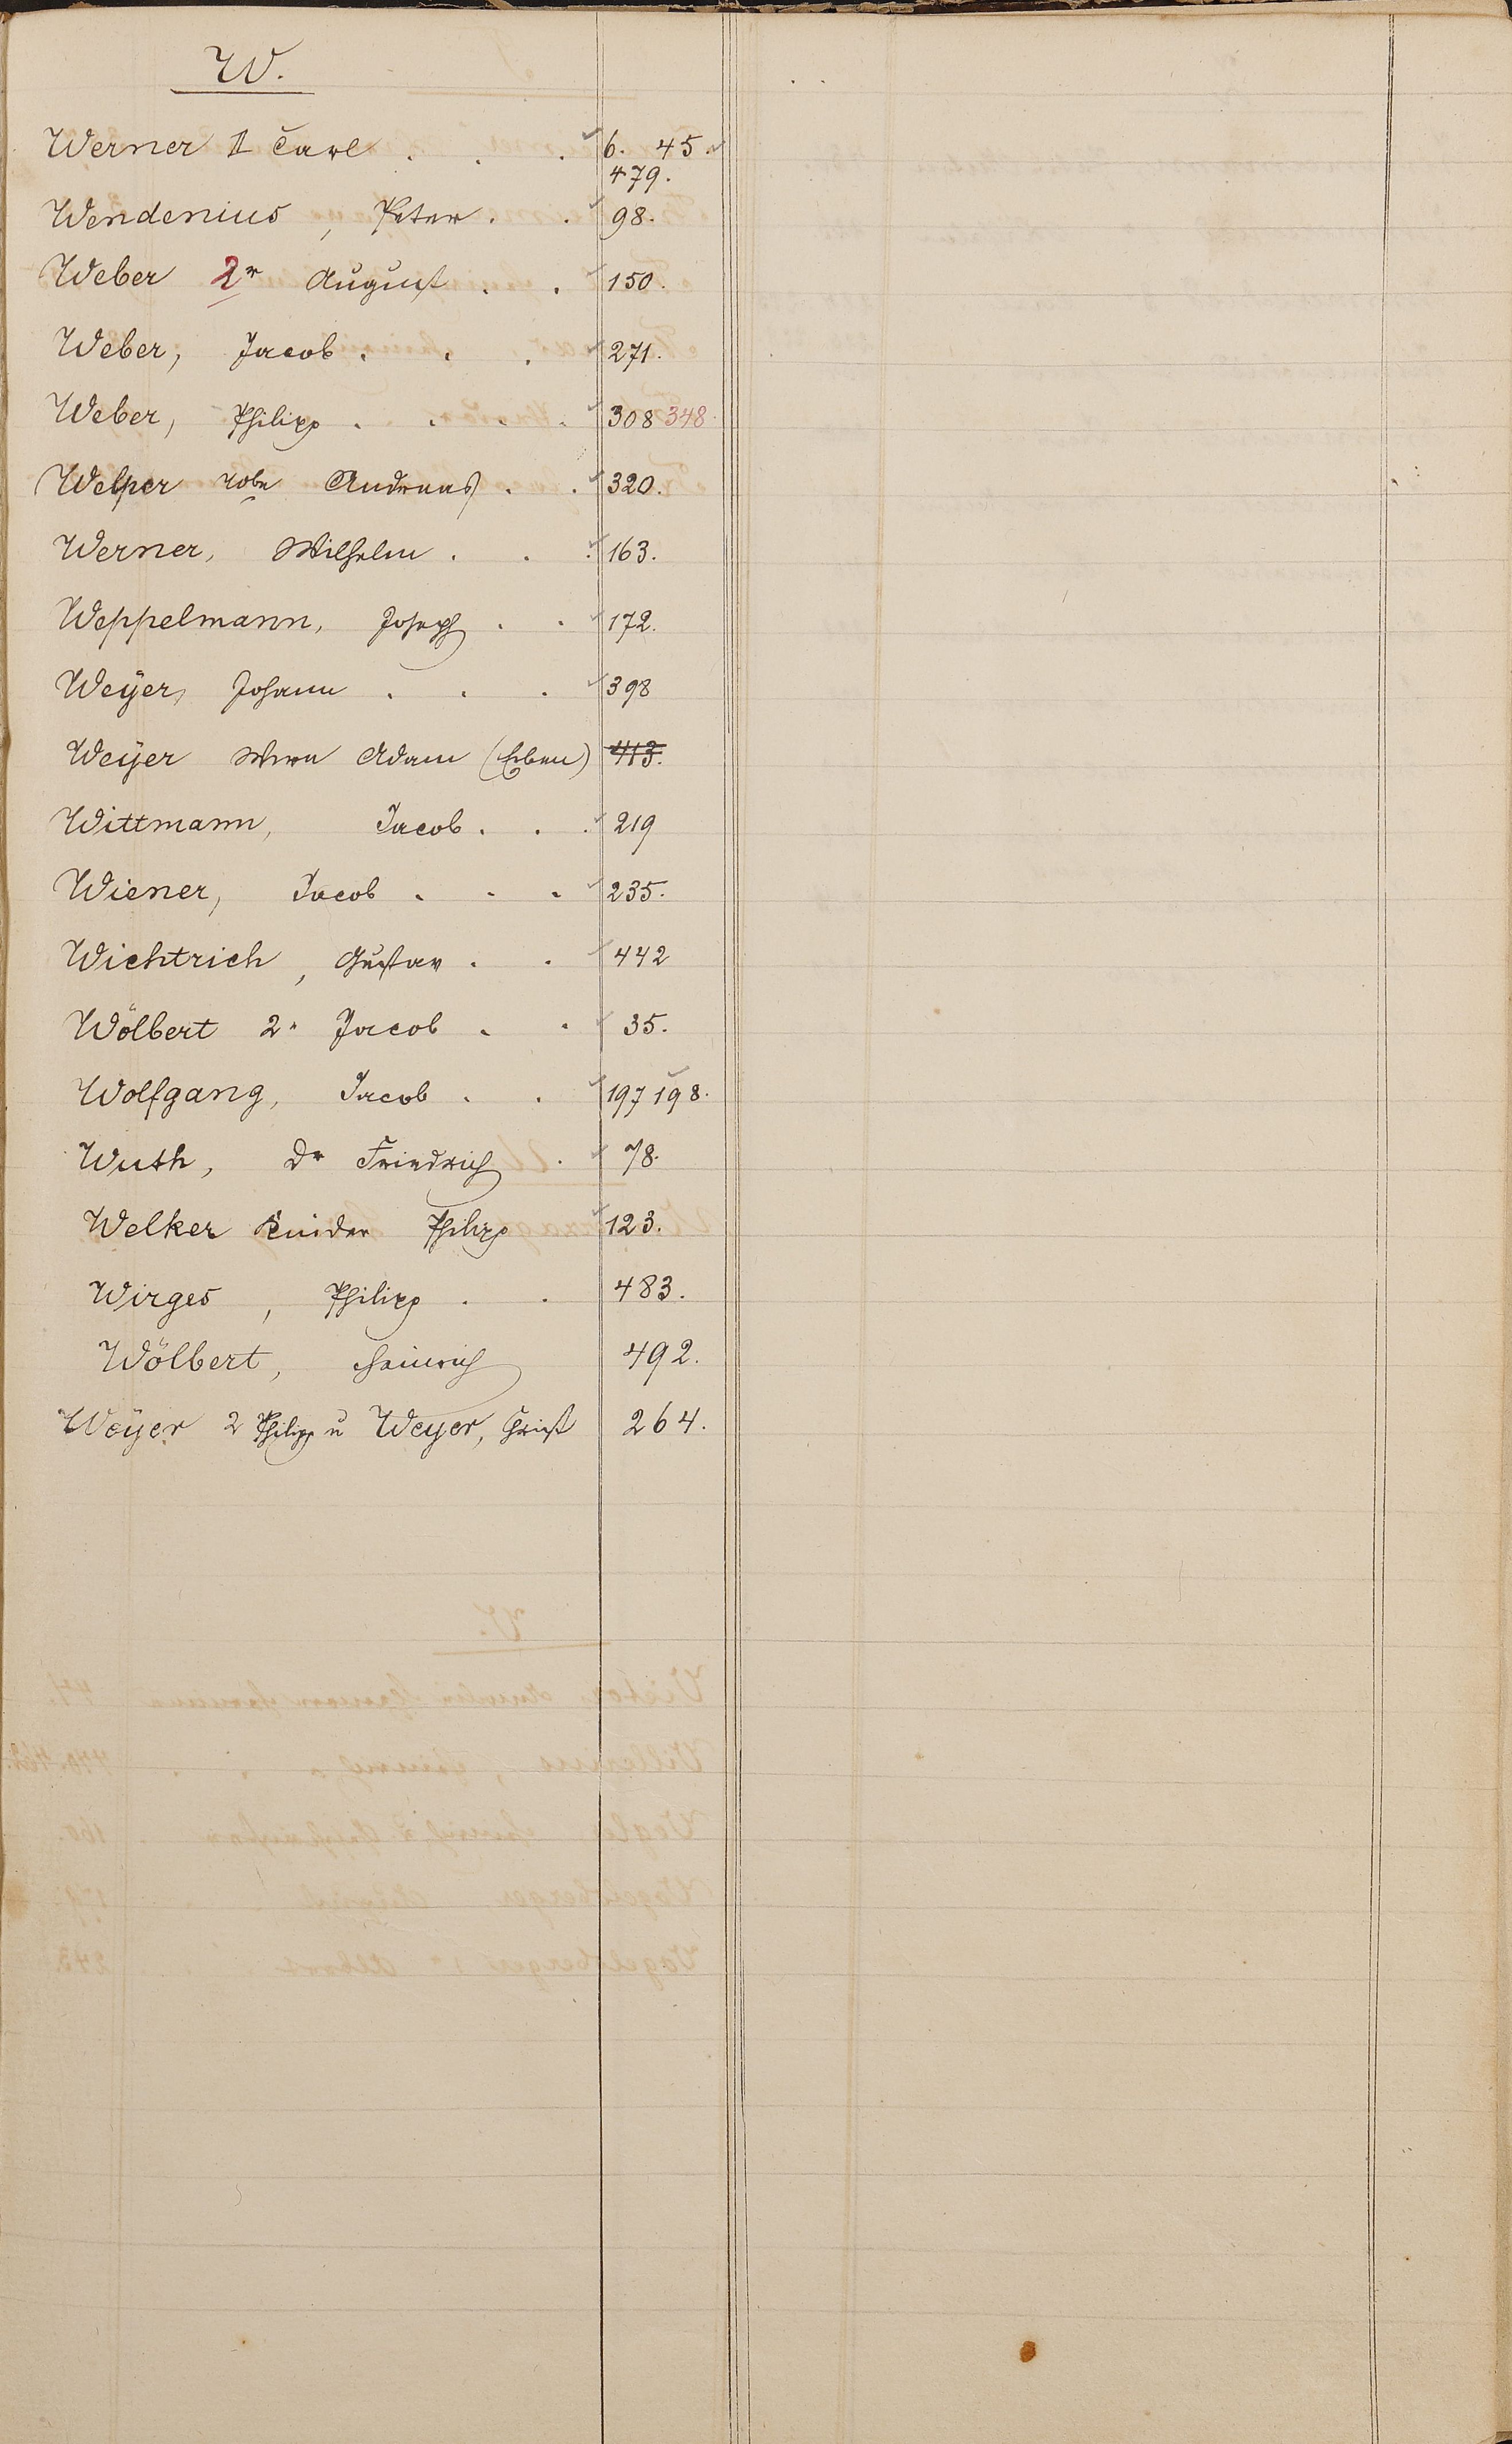 W.
Werner II Carl . . . 6. 45.
479.
Wendenius, Peter . . 98.
Weber 2r August . . 150.
Weber, Jacob . . . 271.
Weber, Philipp . . . . 308 348.
Welper Andreas . . 320.
Werner, Wilhelm . . . 163.
Weppelmann, Joseph . . 172.
Weÿer, Johann . . . 398
Weÿer Wwe Adam (Erben) 413.
Wittmann, Jacob . . . 219
Wiener, Jacob . . . 235.
Wichtrich, Gustav . . 442
Wölbert 2r Jacob . . 35.
Wolfgang, Jacob . . 197 198.
Wuth, Dr Friedrich . 78.
Welker Kinder Philipp 123.
Wirges, Philipp . . 483.
Wölbert, Heinrich 492.
Weÿer 2 Philipp u Weyer, Christ 264.